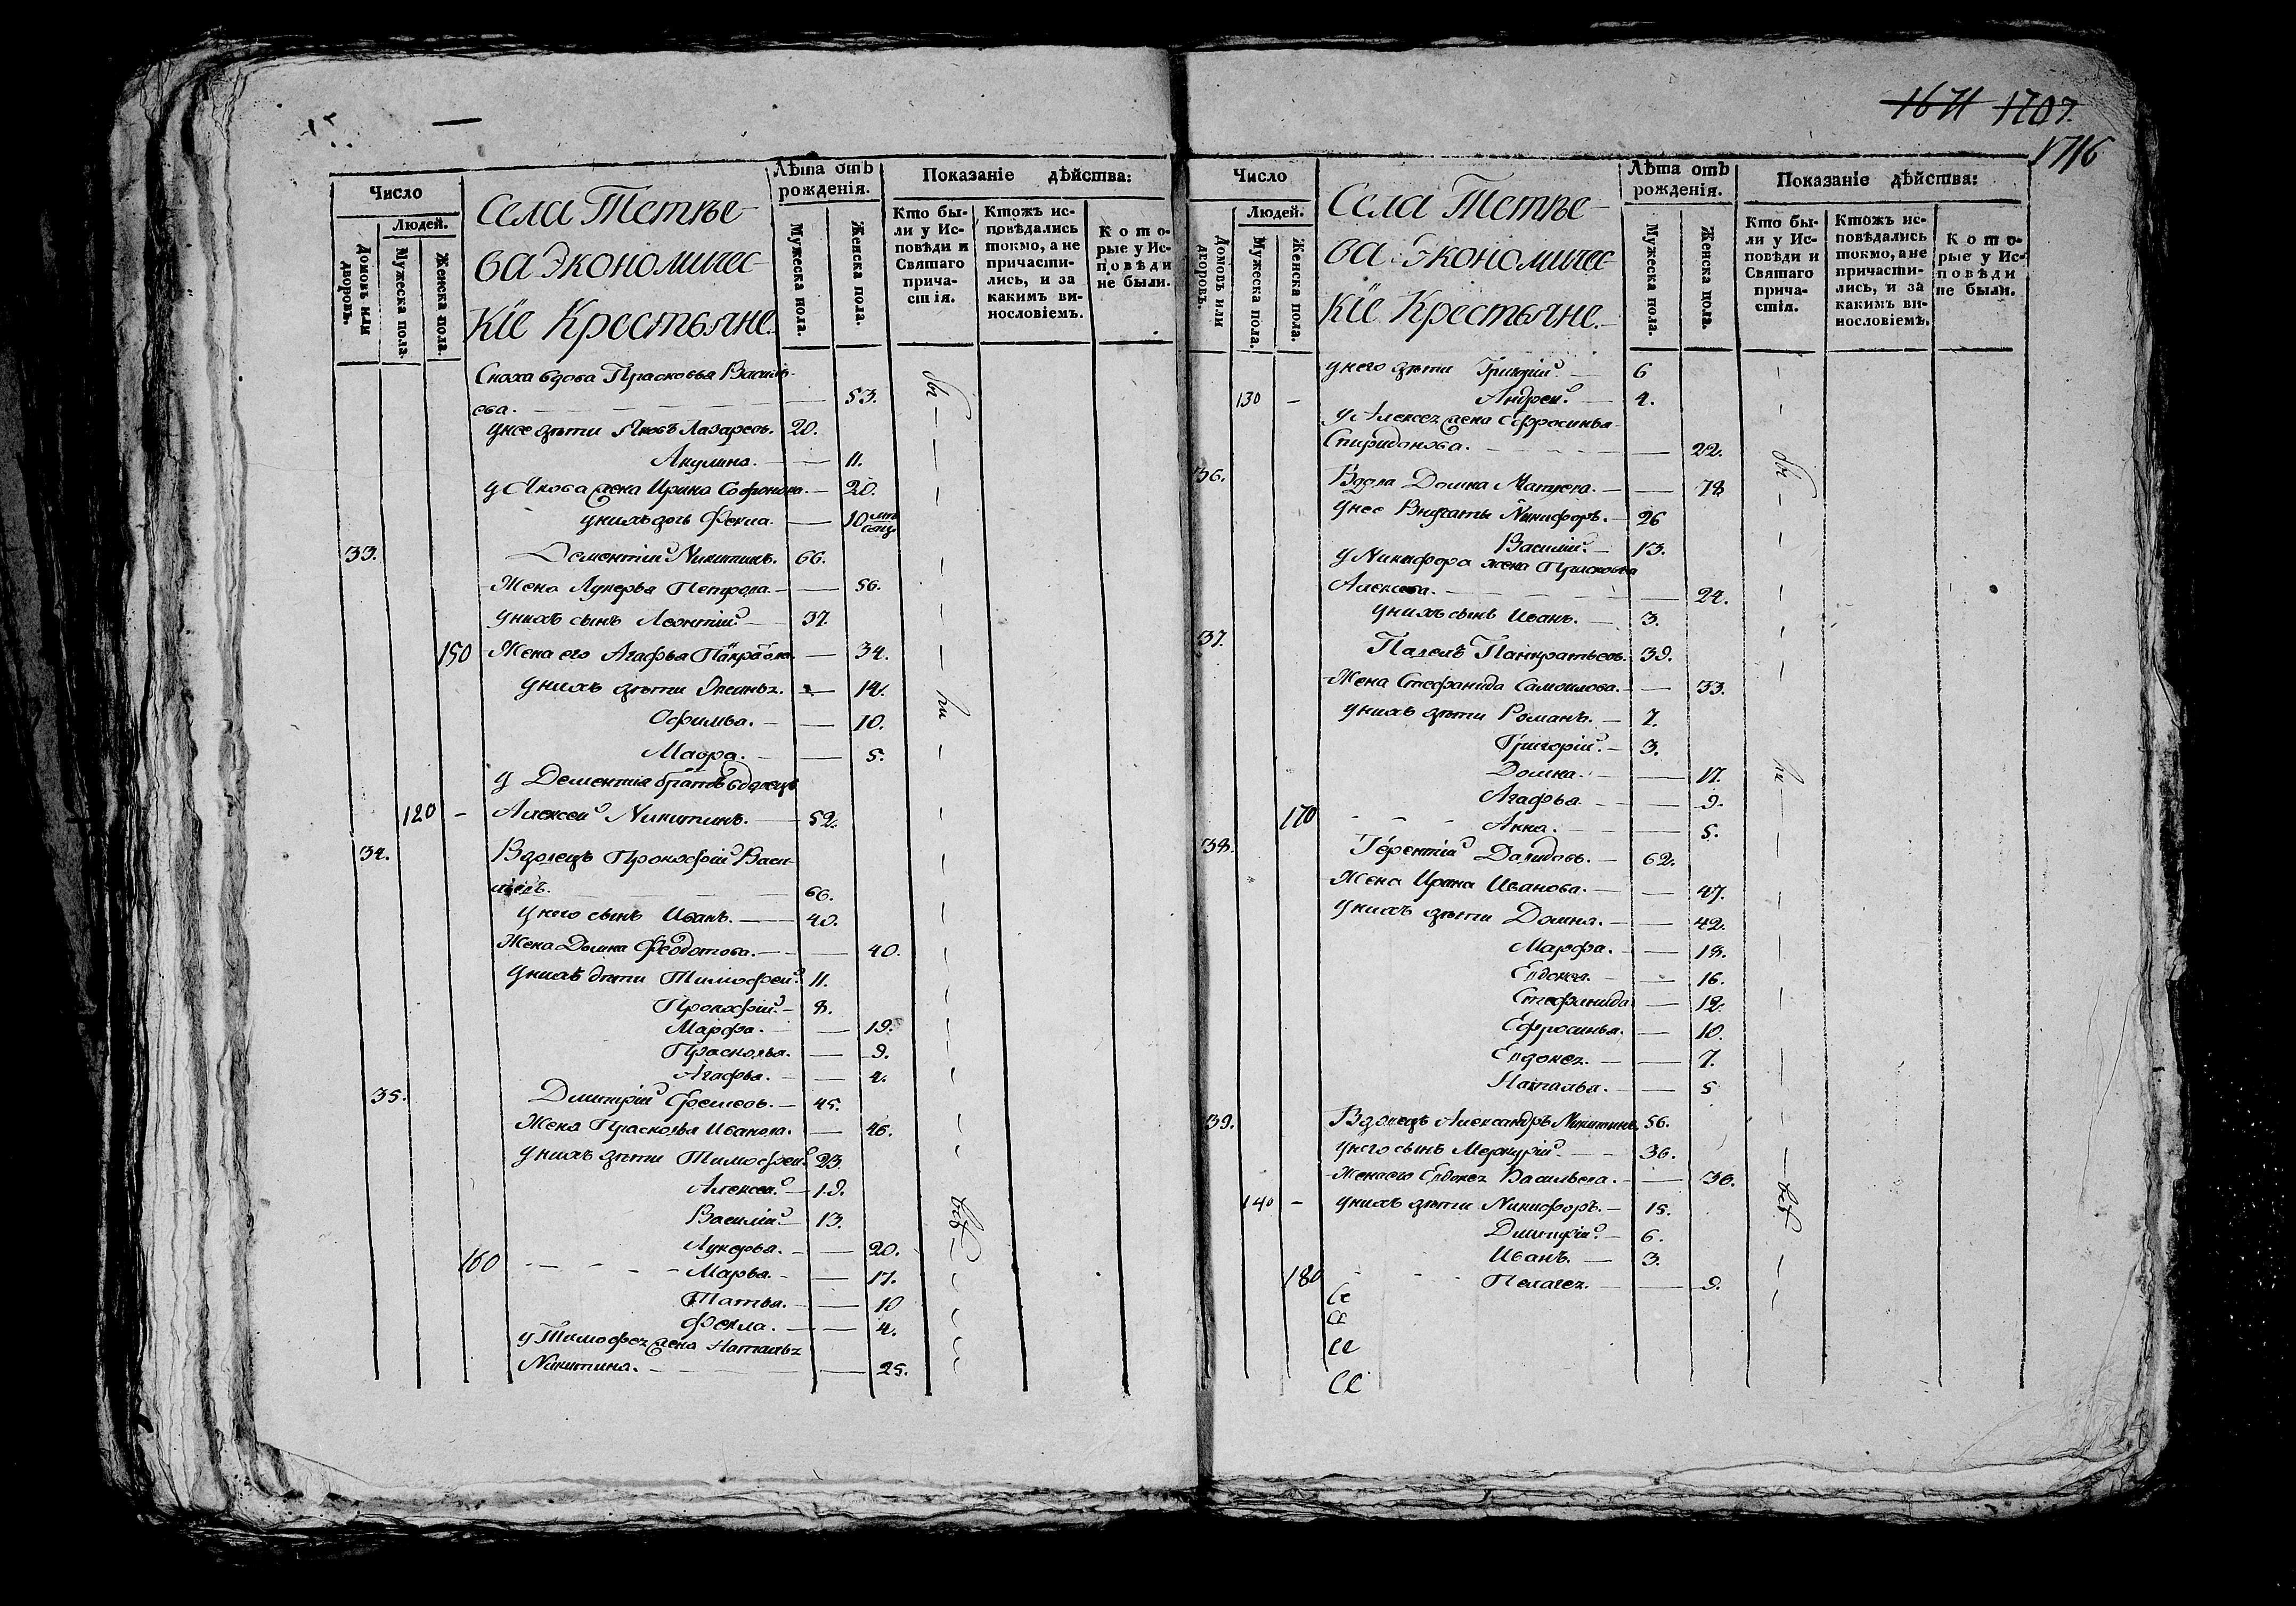 1671 1707.
1716
Число
Людей.
Домовъ или дворовъ.
Мужеска пола.
Женска пола.
Села Тетѣе-
ва Экономичес-
кіе Крестьяне.
Лѣта отъ рожденія.
Мужеска пола.
Женска пола.
Показаніе дѣйства:
Кто бы-
ли у Ис-
повѣди и
Святаго
прича-
стія.
Ктожъ ис-
повѣдались
токмо, а не
причасти-
лись, и за
какимъ ви-
нословіемъ.
Кото-
рые у Ис-
повѣди
не были.
Сноха вдова Прасковья Василь-
ева. 53.
У нее дѣти Яковъ Лазаревъ. 20.
Акулина. 11.
У Якова жена Ирина Софонова. 20.
У нихъ дочь Фекла. 10
33. Дементій Никитинъ. 66.
Жена Лукерья Петрова. 56.
У нихъ сынъ Леонтій 37.
150 Жена его Агафья 34.
У нихъ дѣти 14.
Офимья. 10.
Мавра. 5.
У Дементія братъ вдовецъ
120 Алексей Никитинъ. 52.
34. Вдовецъ Прокофій Васи-
льевъ. 66.
У него сынъ Иванъ. 40.
Жена Домна Феодотова. 40.
У нихъ дѣти Тимофей 11.
Прокофій 8.
Марфа. 19.
Прасковья. 9.
Агафья. 4.
35. Димитрій Еремеевъ. 45.
Жена Прасковья Иванова. 46.
У нихъ дѣти Тимофей 23.
Алексей 19.
Василій 13.
Лукерья. 20.
160 Марья. 17.
Татья. 10
Фекла. 4.
У Тимофея жена Наталья
Никитина. 25.
бы
ли
всѣ
Число
Людей.
Домовъ или дворовъ.
Мужеска пола.
Женска пола.
Села Тетѣе-
ва Экономичес-
кіе Крестьяне.
Лѣта отъ рожденія.
Мужеска пола.
Женска пола.
Показаніе дѣйства:
Кто бы-
ли у Ис-
повѣди и
Святаго
прича-
стія.
Ктожъ ис-
повѣдались
токмо, а не
причасти-
лись, и за
какимъ ви-
нословіемъ.
Кото-
рые у Ис-
повѣди
не были.
У него дѣти Григорій 6
130 Андрей 4.
У Алексея жена Ефросинья
Спиридонова. 22.
36. Вдова Домна Матвева. 78
У нее Внучаты Никифоръ. 26
Василій 13.
У Никифора жена Прасковья
Алексева. 24.
У нихъ сынъ Иванъ. 3.
37. Павелъ Панкратьевъ. 39.
Жена Стефанида Самоилова. 33.
У нихъ дѣти Романъ. 7.
Григорій 3.
Домна. 17.
Агафья. 9.
170 Анна. 5.
38. Терентій Давидовъ. 62.
Жена Ирина Иванова. 47.
У нихъ дѣти Домна. 42.
Марфа. 18.
Евдокея. 16.
Стефанида. 12.
Ефросинья. 10.
Евдокея. 7.
Наталья. 5
39. Вдовецъ Александръ Никитинъ. 56.
У него сынъ Меркурій 36.
Жена его Евдокея Васильева. 36.
140 У нихъ дѣти Никифоръ. 15.
Димитрій 6.
Иванъ. 3.
180 Пелагея. 9.
бы
ли
всѣ